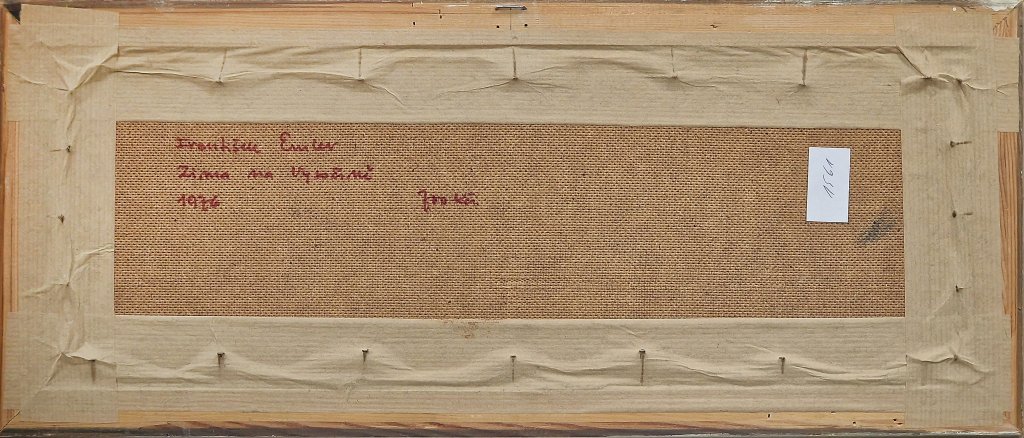 František Emler
Zima na Vysočině
1976 700 Kčs
1561